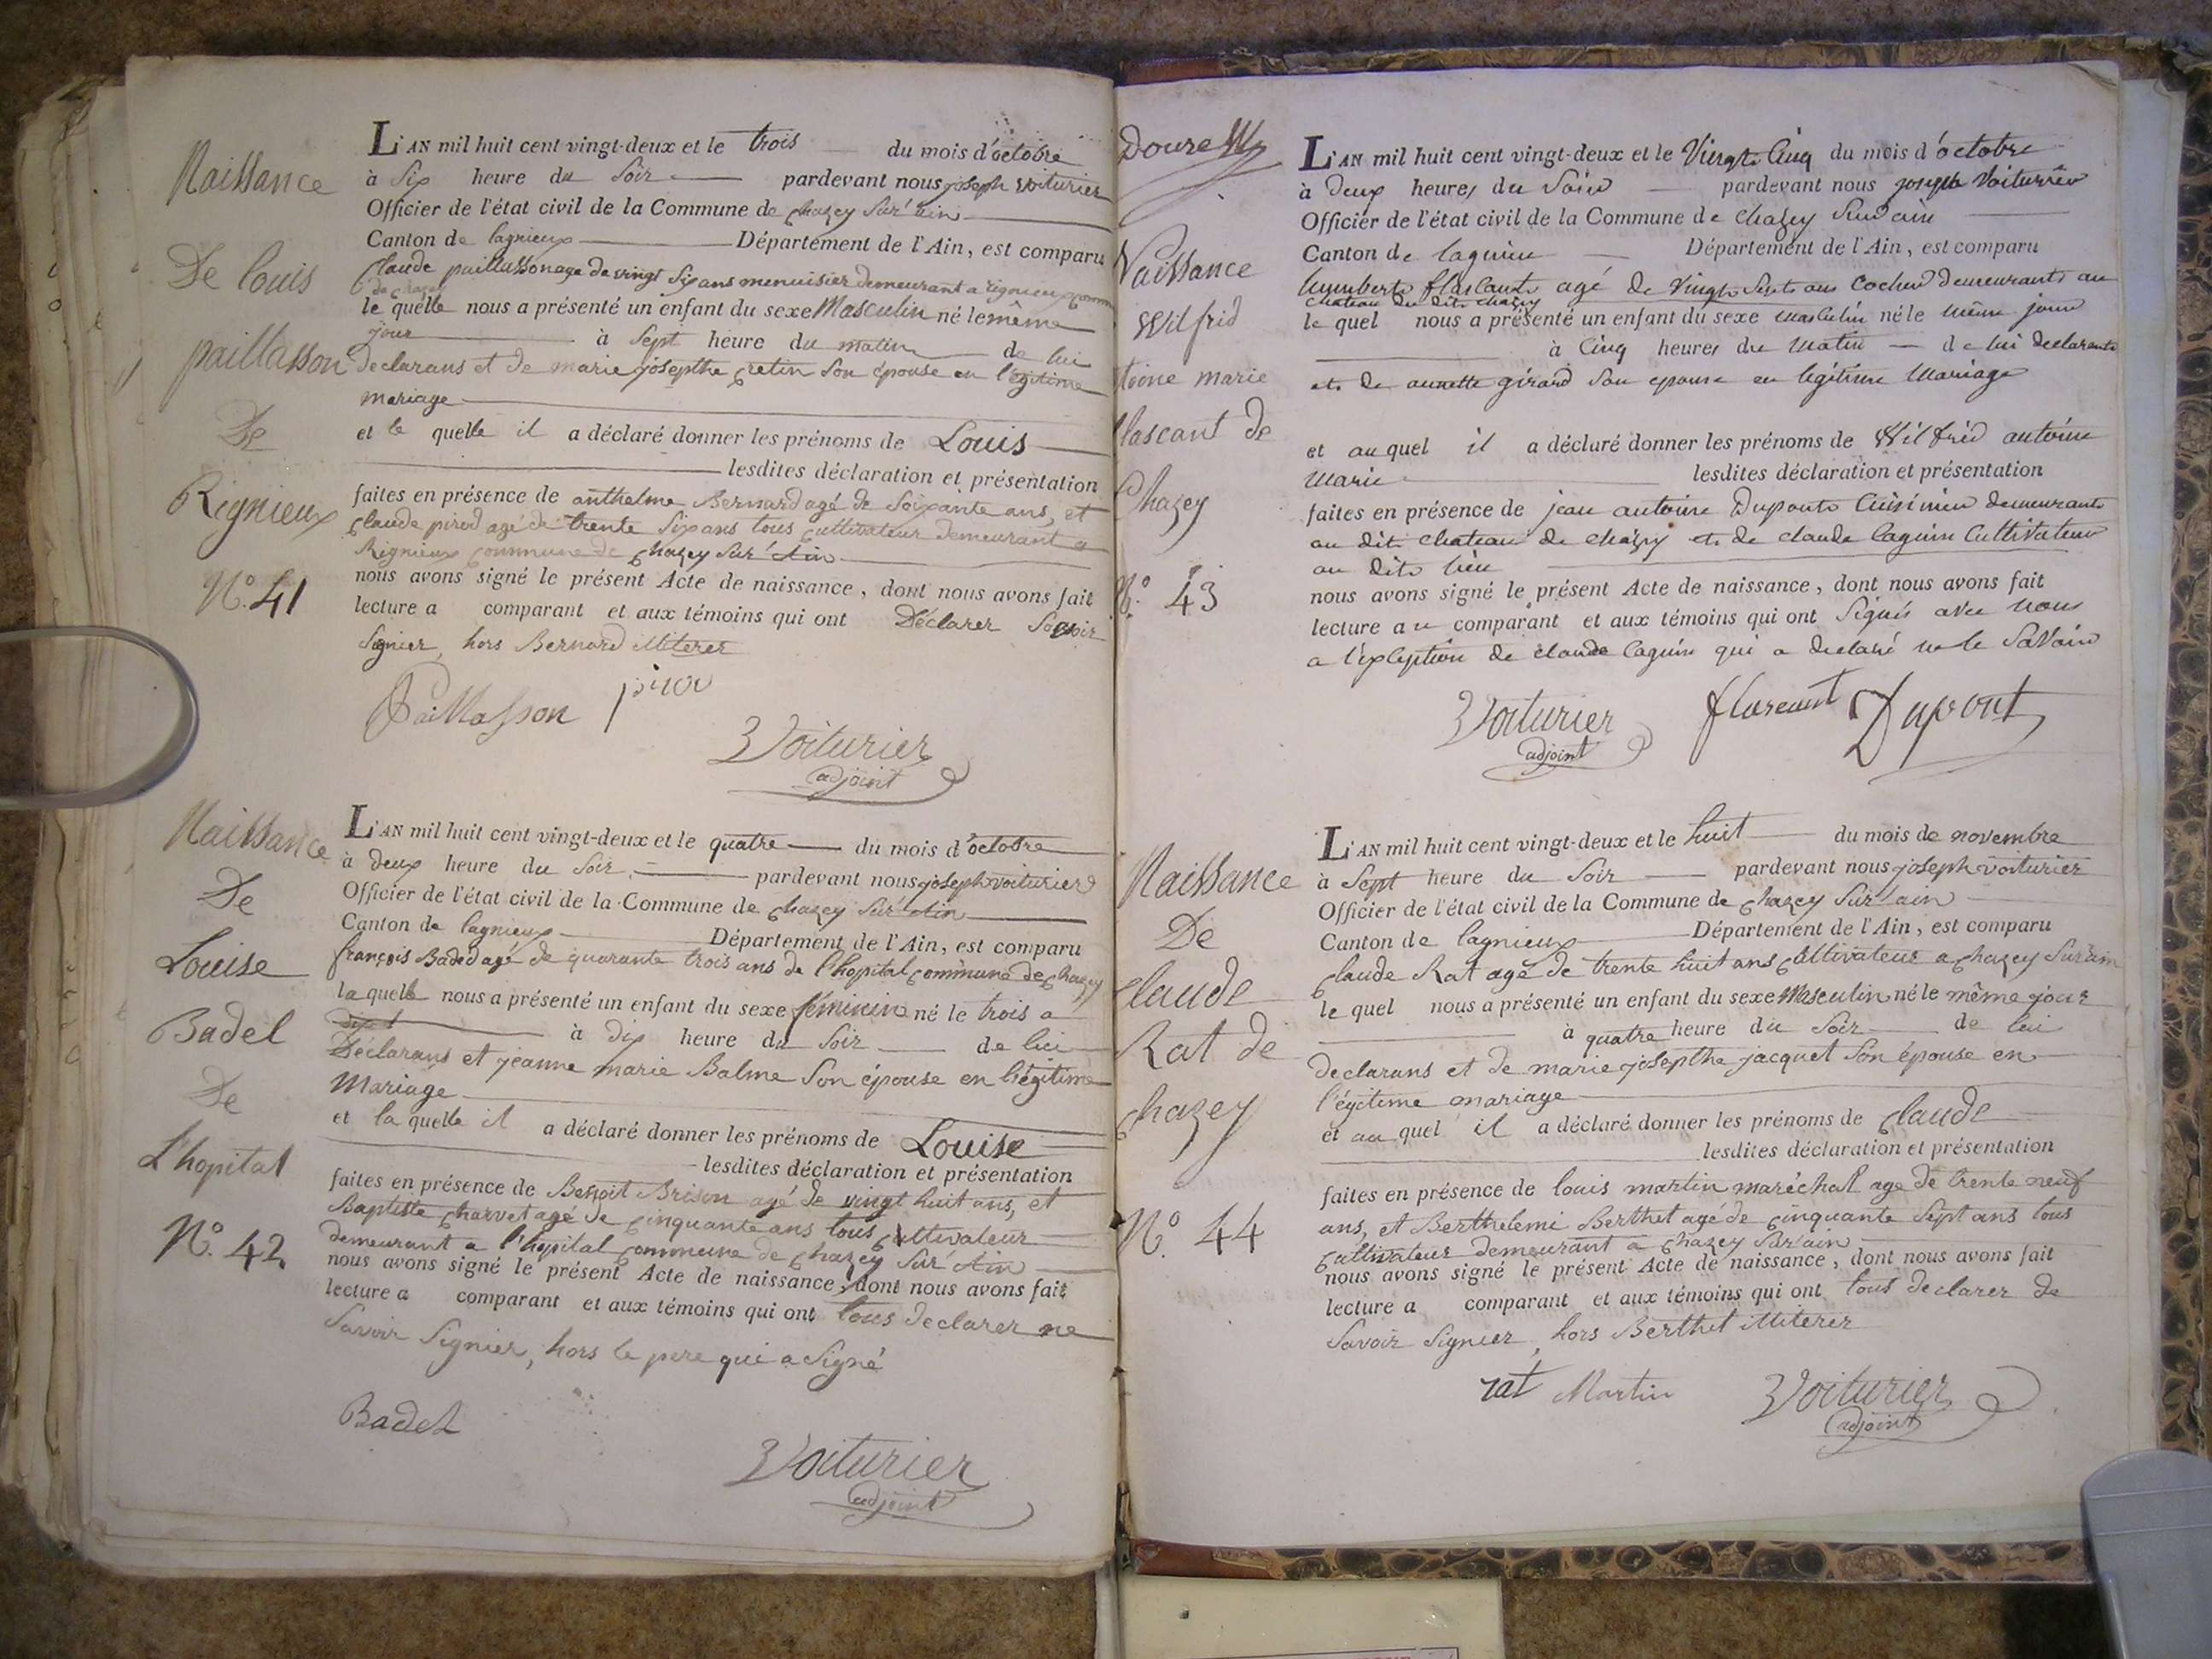 Naissance
De louis
paillasson
De
Rignieux
N.° 41
L'AN mil huit cent vingt-deux et le trois du mois d'octobre
à Six heure du Soir pardevant nous joseph voiturier
Officier de l'état civil de la Commune de chazey Sur ain
Canton de lagnieux Département de l'Ain, est comparu
Claude paillasson age de vingt Six ans menuisier demeurant a rignieux
de chazey
le quelle nous a présenté un enfant du sexe Masculin né le même
jour à Sept heure du matin de lui
declarans et de marie josepthe cretin Son épouse en l'égitime
mariage
et le quelle il a déclaré donner les prénoms de Louis
lesdites déclaration et présentation
faites en présence de anthelme Bernard agé de Soixante ans, et
claude pirod agé de trente Six ans tous cultivateur demeurant a
Rignieux commune de chazey Sur Ain
nous avons signé le présent Acte de naissance, dont nous avons fait
lecture a comparant et aux témoins qui ont Déclarer Savoir
Signier, hors Bernard illiterer
Paillasson
Voiturier
adjoint
Naissance
De
Louise
Badel
De
L'hopital
N.° 42
L'AN mil huit cent vingt-deux et le quatre du mois d'octobre
à deux heure du Soir pardevant nous joseph voiturier
Officier de l'état civil de la Commune de chazey Sur Ain
Canton de lagnieux Département de l'Ain, est comparu
françois Badel agé de quarante trois ans de l'hopital commune de chazey
la quelle nous a présenté un enfant du sexe féminin né le trois a
à dix heure du Soir de lui
Déclarans et jeanne marie Balme Son épouse en légitime
Mariage
et la quelle il a déclaré donner les prénoms de Louise
lesdites déclaration et présentation
faites en présence de Benoit Brison agé de vingt huit ans, et
Baptiste charvet agé de cinquante ans tous cultivateur
demeurant a l'hopital commune de chazey Sur Ain
nous avons signé le présent Acte de naissance, dont nous avons fait
lecture a comparant et aux témoins qui ont tous declarer ne
Savoir Signier, hors le pere qui a Signé
Badel
Voiturier
adjoint
Naissance
Wilfrid
toine marie
flascant de
Chazey
N.° 43
L'AN mil huit cent vingt-deux et le Vingt Cinq du mois d'octobre
à deux heures du Soir pardevant nous joseph Voiturier
Officier de l'état civil de la Commune de chazey Sur ain
Canton de lagnieu Département de l'Ain, est comparu
humbert agé de Vingt Sept ans Cocher demeurant au
chateau du dit chazey
le quel nous a présenté un enfant du sexe masculin né le même jour
à Cinq heures du matin de lui declarant
et de annette girard Son epouse en legitime Mariage
et au quel il a déclaré donner les prénoms de Wilfrid antoine
Marie lesdites déclaration et présentation
faites en présence de jean antoine Dupont Cuisinier demeurant
au dit chateau de chazey et de claude laguin Cultivateur
au dit lieu
nous avons signé le présent Acte de naissance, dont nous avons fait
lecture au comparant et aux témoins qui ont Signés avec nous
a l'exception de claude laguin qui a declaré ne le Savoir
Voiturier Dupont
adjoint
Naissance
De
claude
Rat de
chazey
N.° 44
L'AN mil huit cent vingt-deux et le huit du mois de novembre
à Sept heure du Soir pardevant nous joseph voiturier
Officier de l'état civil de la Commune de chazey Sur ain
Canton de lagnieux Département de l'Ain, est comparu
claude Rat agé de trente huit ans cultivateur a chazey Sur ain
le quel nous a présenté un enfant du sexe Masculin né le même jour
à quatre heure du Soir de lui
declarans et de marie josepthe jacquet Son épouse en
l'égitime mariage
et au quel il a déclaré donner les prénoms de claude
lesdites déclaration et présentation
faites en présence de louis martin maréchal age de trente neuf
ans, et Berthelemi Berthet agé de cinquante Sept ans tous
cultivateur demeurant a chazey Sur ain
nous avons signé le présent Acte de naissance, dont nous avons fait
lecture a comparant et aux témoins qui ont tous declarer de
Savoir Signier, hors Berthet illiterer
rat Martin Voiturier
adjoint